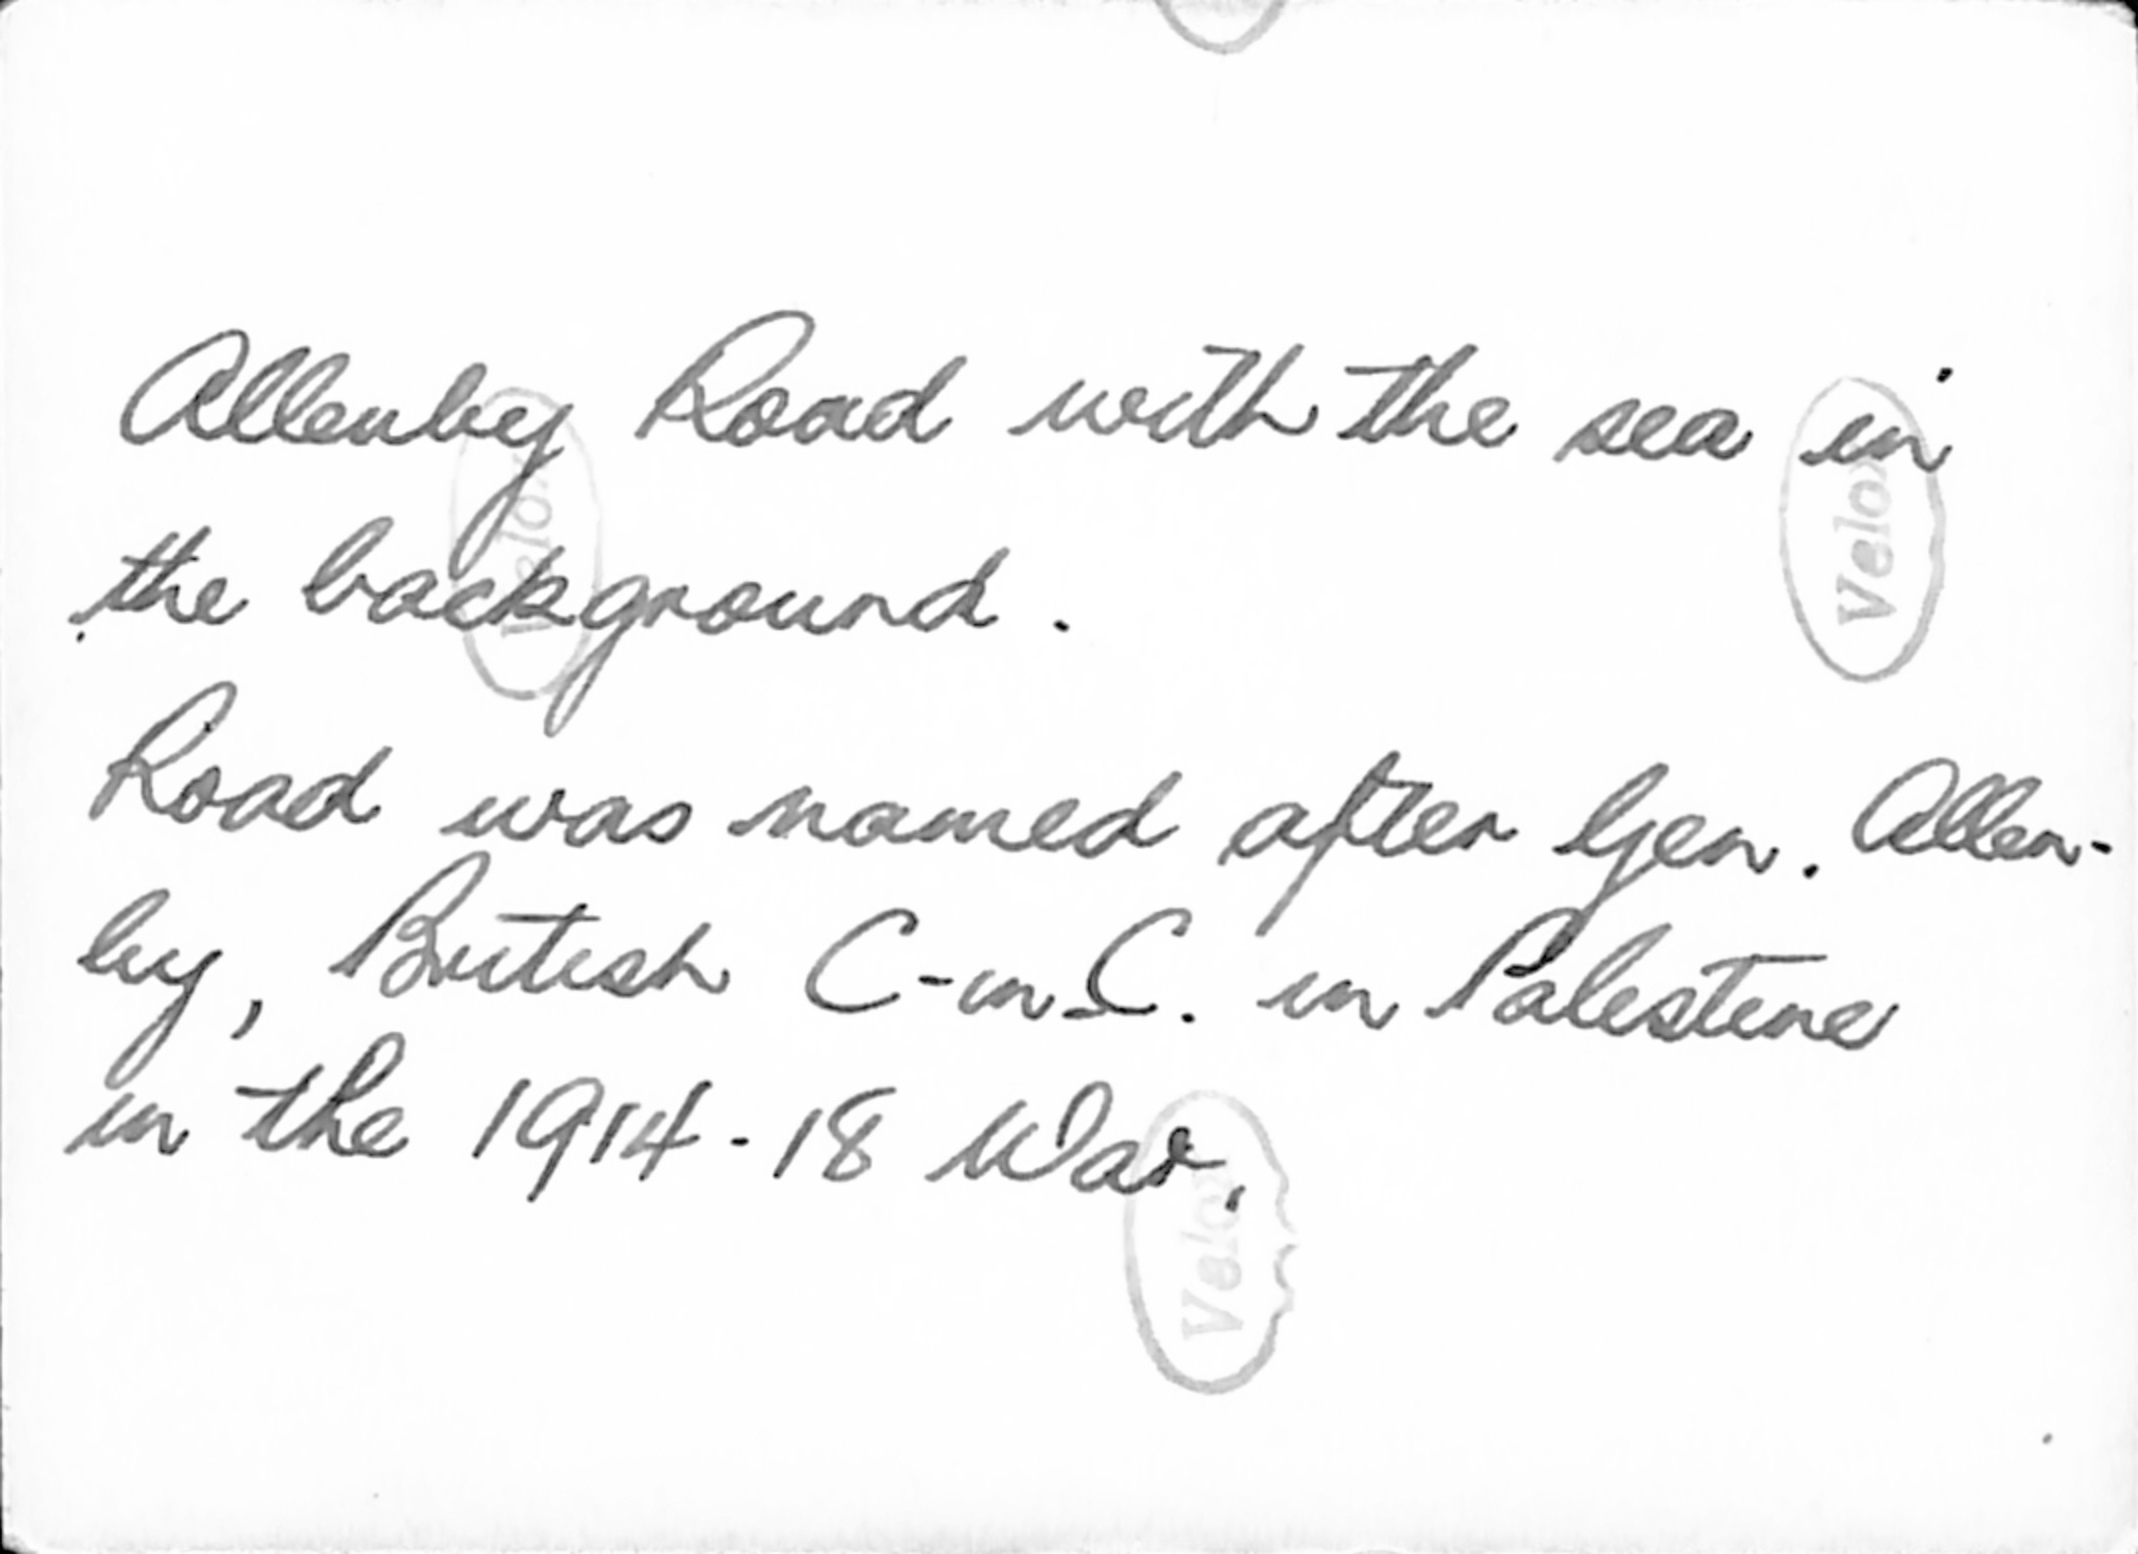 Allenby Road with the sea in
the background.
Road was named after Gen. Allen-
by, British C-in-C. in Palestine
in the 1914-18 War.
Velox
Velox
Velox